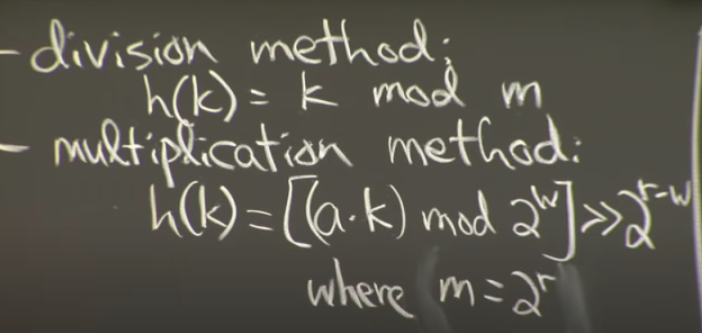 - division method:
h(k) = k mod m
- multiplication method:
h(k) = [(a·k) mod 2^w] >> 2^r-w
where m = 2^r